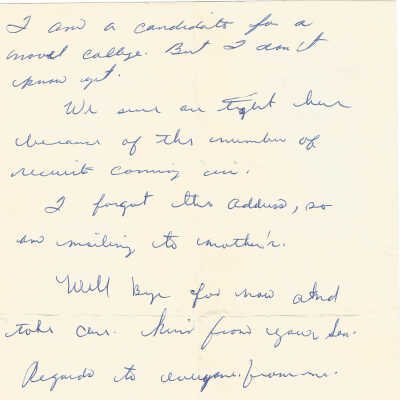 I am a candidate for a
naval college. But I don't
know yet.
We sure are tight here
because of the number of
recruits coming in.
I forgot the address, so
am mailing to mother's.
Well bye for now and
take care. Kiss from your Son.
Regards to everyone. from me.